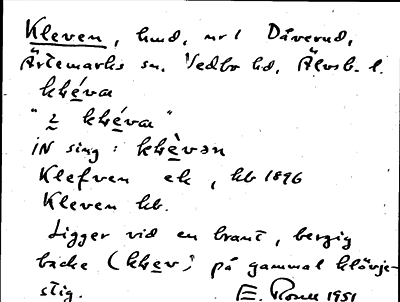 Kleven, hmd, nr 1 Dåverud,
Ärtemarks sn. Vedbo hd, Älvsb. l.
khéva
"i khéva"
iN sing: khèvən
Klefven ek, kb 1896
Kleven kb.
Ligger vid en brant, bergig
backe (khev) på gammal klövje-
stig. E. Rosell 1951